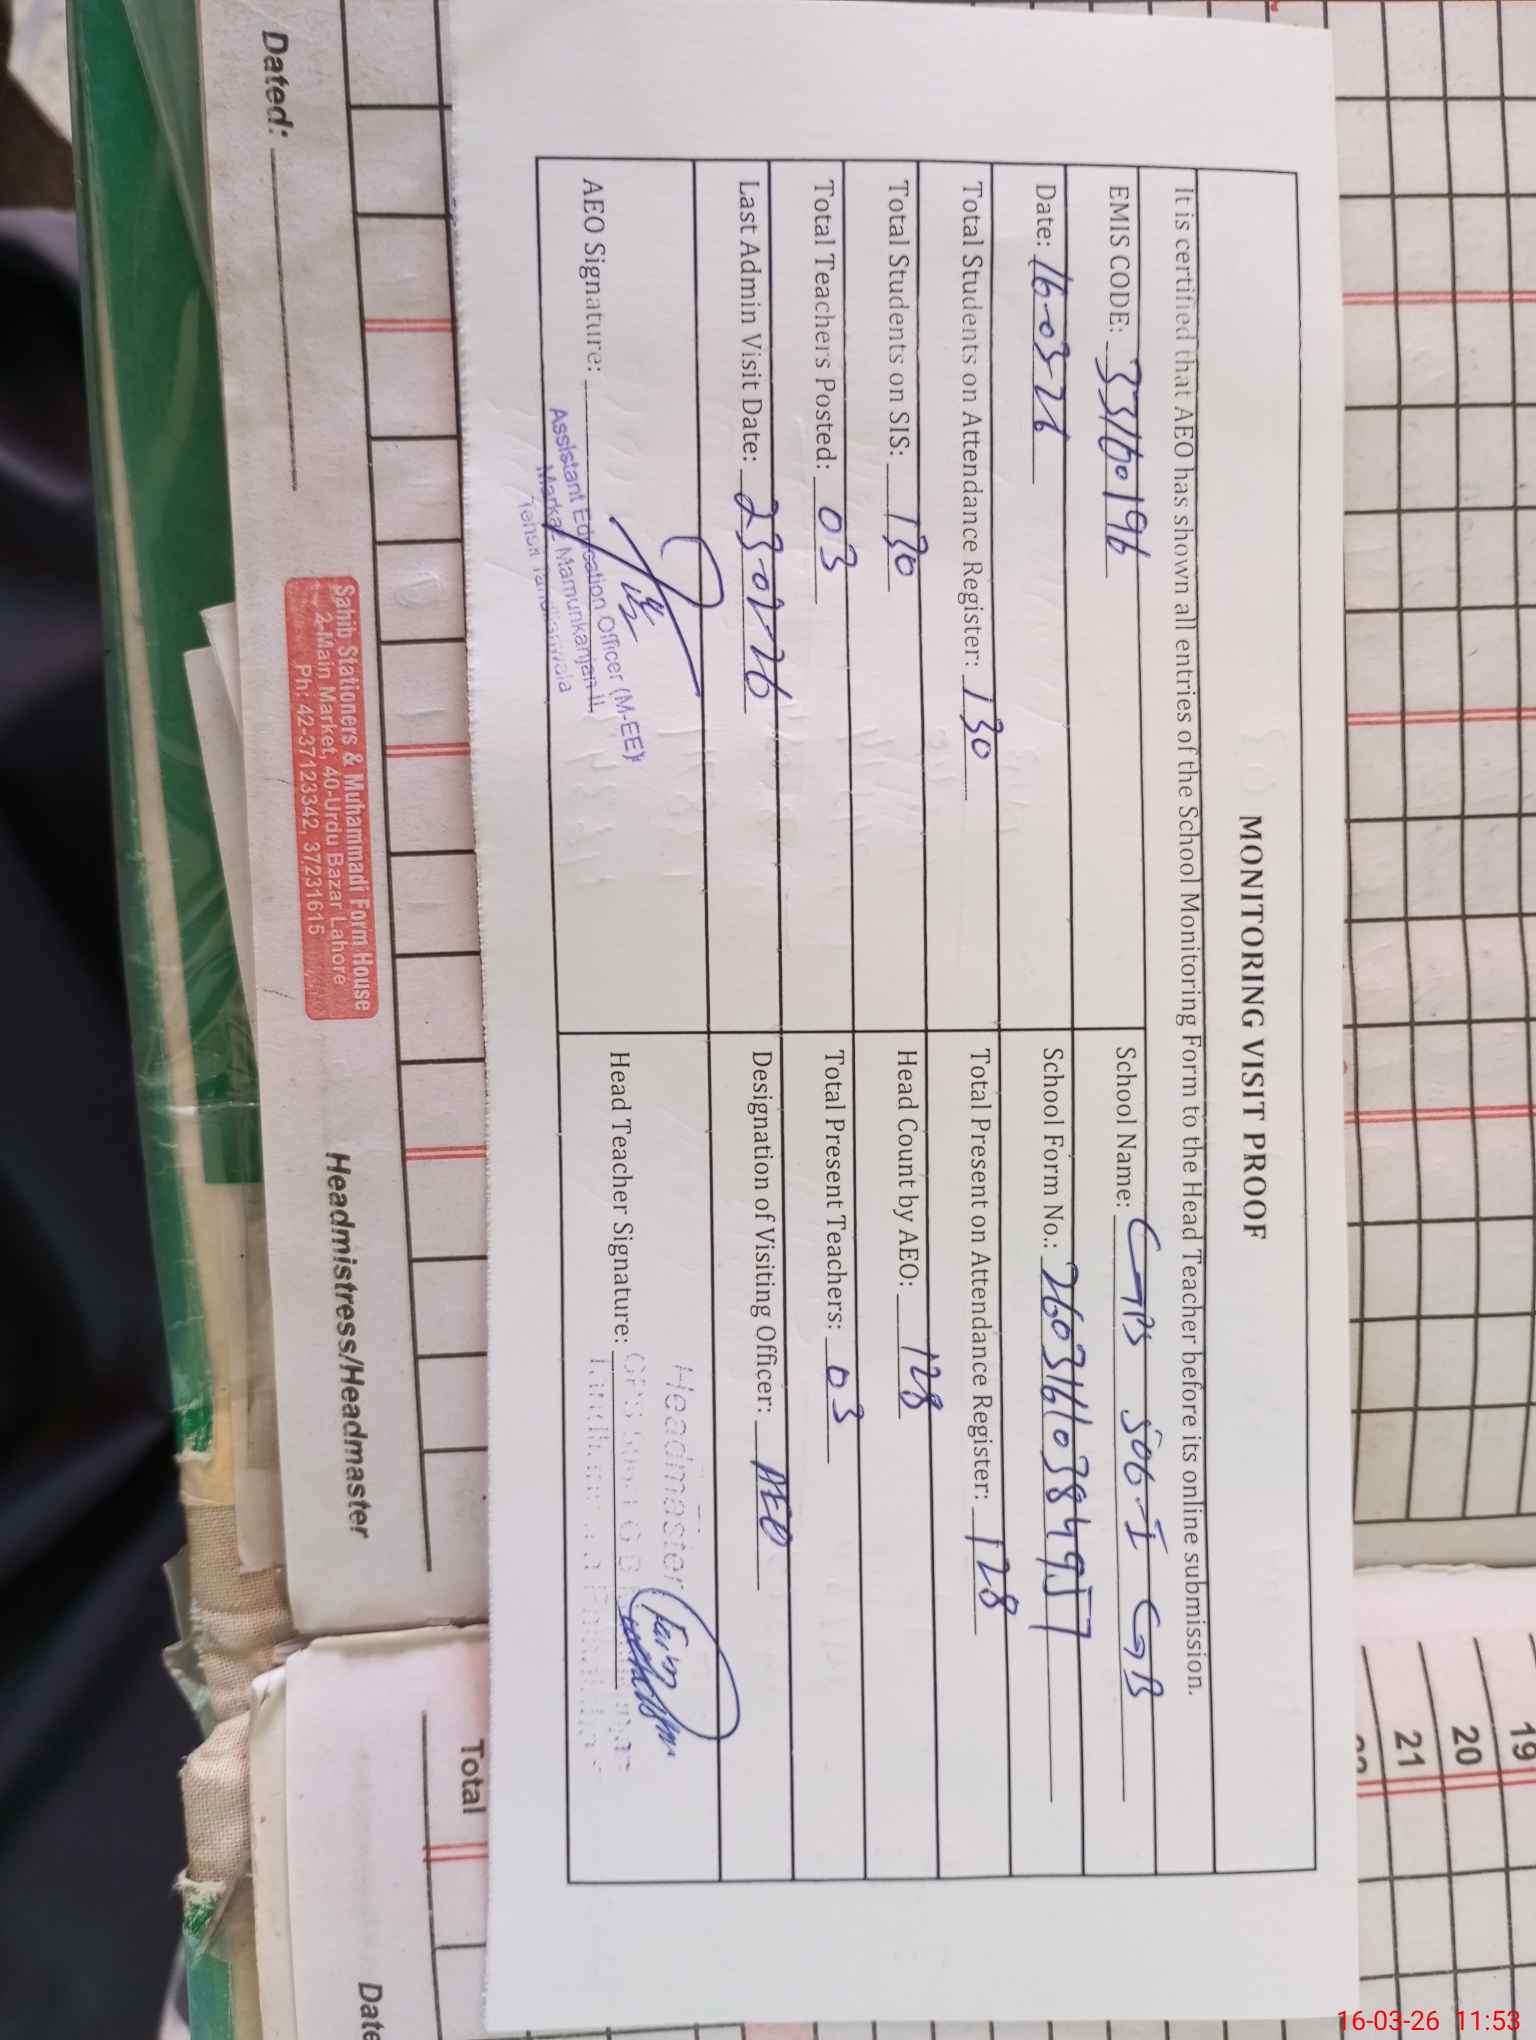 MONITORING VISIT PROOF
It is certified that AEO has shown all entries of the School Monitoring Form to the Head Teacher before its online submission.
EMIS CODE: 33160196
School Name: GPS 506-I GB
Date: 16-03-26
School Form No.: 26031611038495
Total Students on Attendance Register: 130
Total Present on Attendance Register: 128
Total Students on SIS: 130
Head Count by AEO: 128
Total Teachers Posted: 03
Total Present Teachers: 03
Last Admin Visit Date: 23-02-26
Designation of Visiting Officer: AEO
AEO Signature:
Assistant Education Officer (M-EE)
Markaz Mamunkanjan II,
Tehsil Tandlianwala
Head Teacher Signature:
Headmaster
Dated:
Sahib Stationers & Muhammadi Form House
2-Main Market, 40-Urdu Bazar Lahore
Ph: 42-37123342, 37231615
Headmistress/Headmaster
Total
Date
19
20
21
16-03-26 11:53